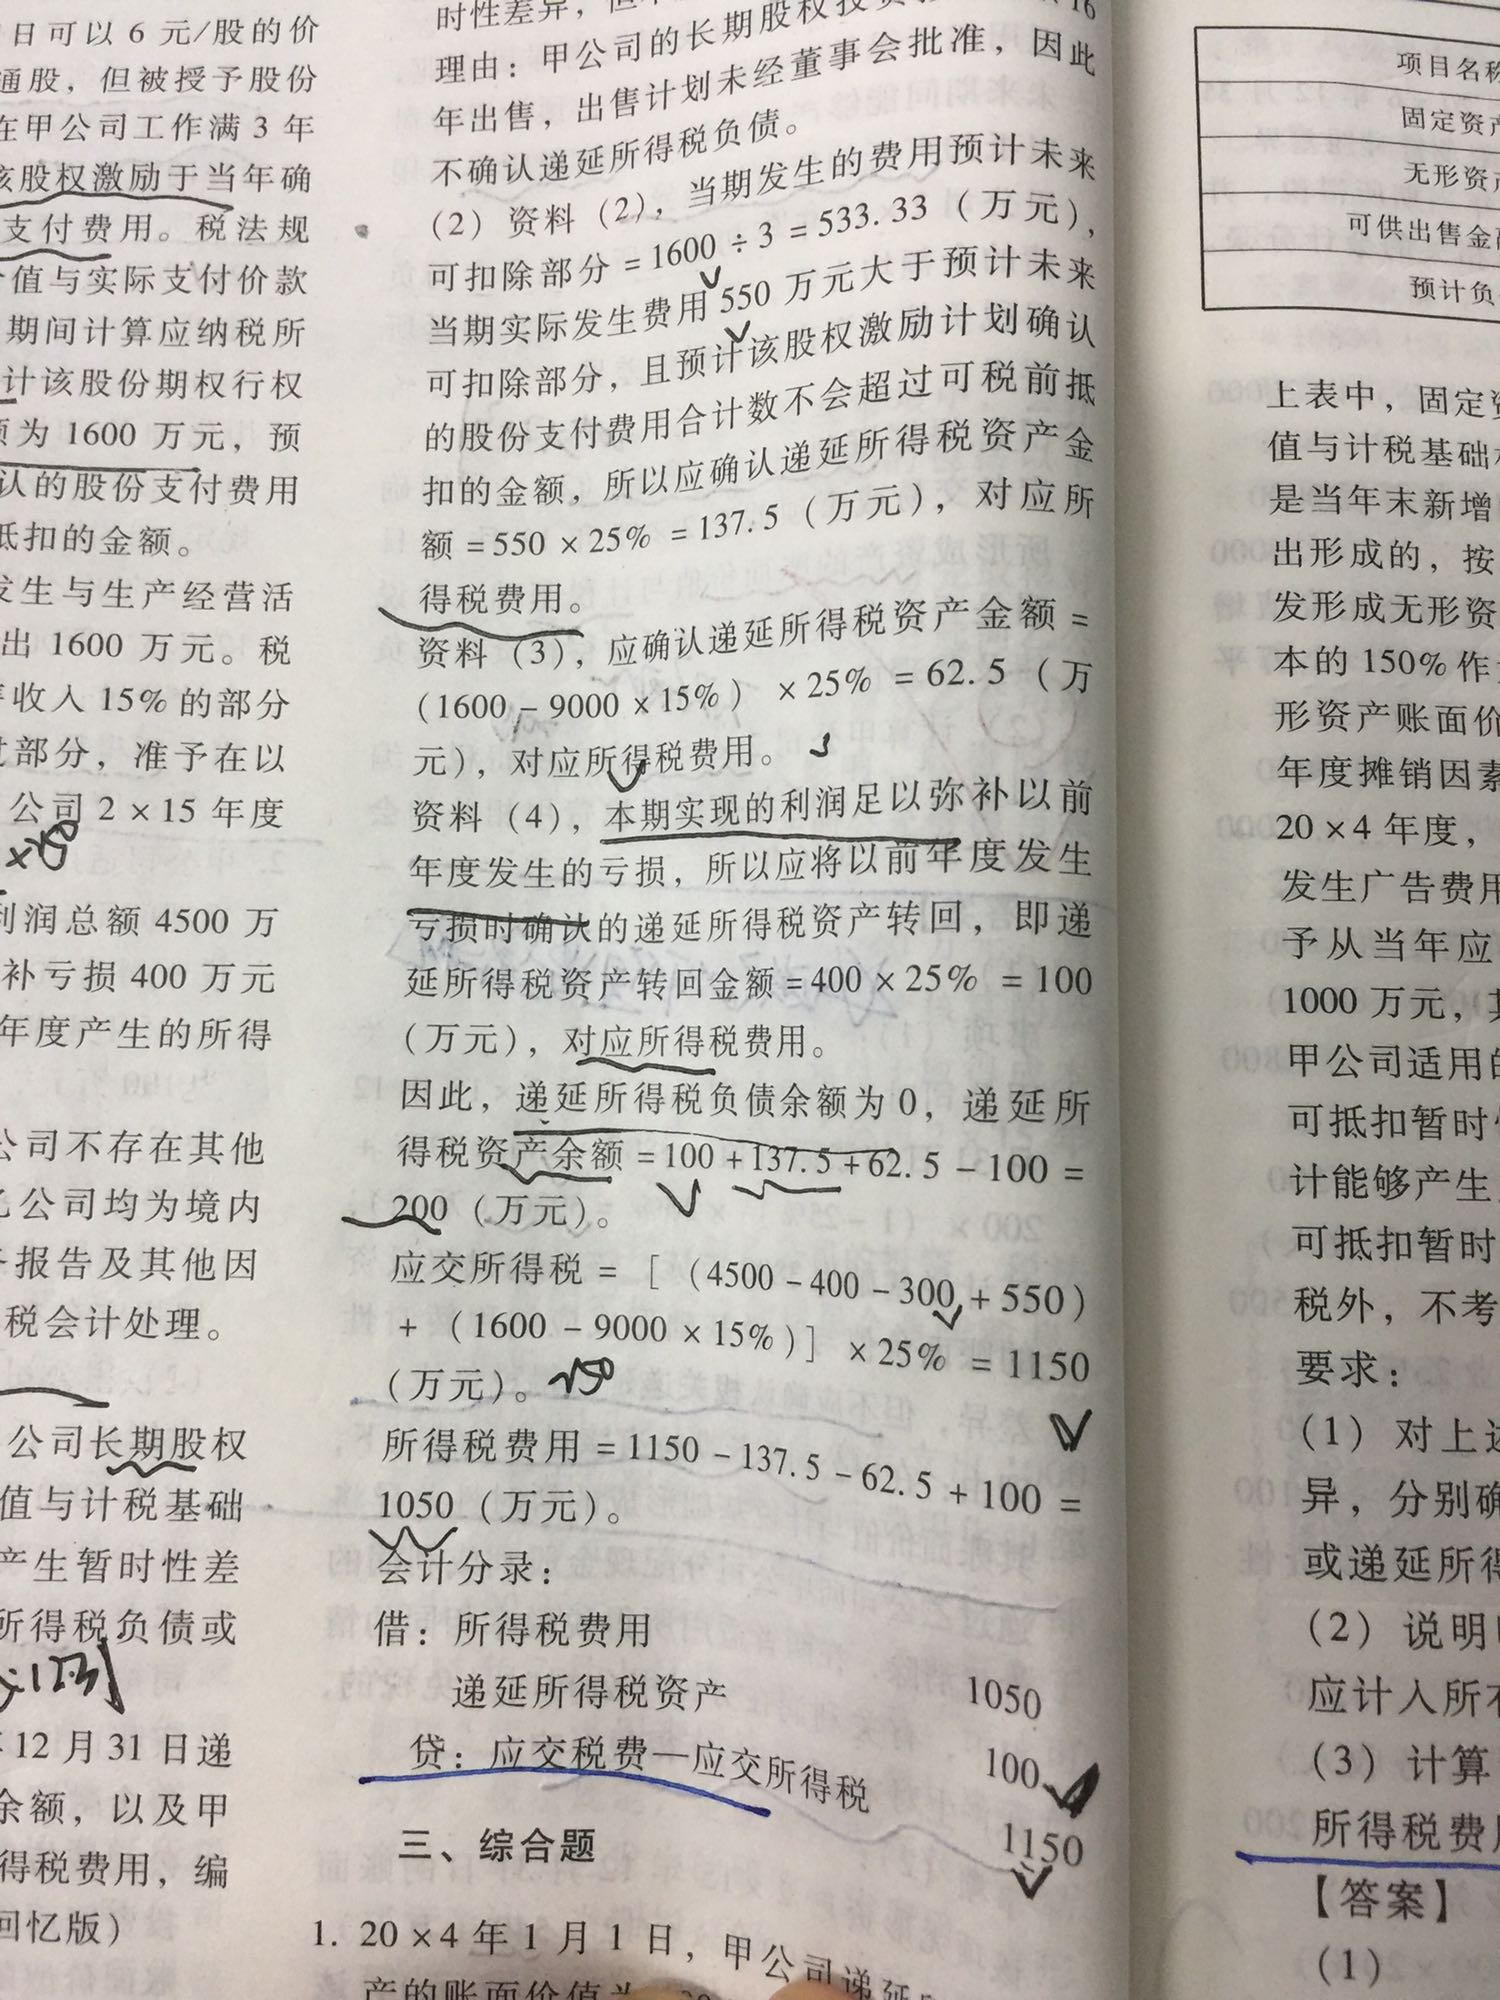 日可以 6 元/股的价
通股，但被授予股份
在甲公司工作满 3 年
该股权激励于当年确
支付费用。税法规
价值与实际支付价款
期间计算应纳税所
计该股份期权行权
额为 1600 万元，预
认的股份支付费用
抵扣的金额。
发生与生产经营活
出 1600 万元。税
售收入 15% 的部分
过部分，准予在以
公司 2 × 15 年度
利润总额 4500 万
补亏损 400 万元
年度产生的所得
公司不存在其他
乙公司均为境内
务报告及其他因
税会计处理。
公司长期股权
值与计税基础
产生暂时性差
所得税负债或
年 12 月 31 日递
余额，以及甲
得税费用，编
回忆版）
时性差异，
理由：甲公司的长期股权投资 16
年出售，出售计划未经董事会批准，因此
不确认递延所得税负债。
（2）资料（2），当期发生的费用预计未来
可扣除部分 = 1600 ÷ 3 = 533. 33（万元），
当期实际发生费用 550 万元大于预计未来
可扣除部分，且预计该股权激励计划确认
的股份支付费用合计数不会超过可税前抵
扣的金额，所以应确认递延所得税资产金
额 = 550 × 25% = 137. 5（万元），对应所
得税费用。
资料（3），应确认递延所得税资产金额 =
（1600 - 9000 × 15%） × 25% = 62. 5（万
元），对应所得税费用。
资料（4），本期实现的利润足以弥补以前
年度发生的亏损，所以应将以前年度发生
亏损时确认的递延所得税资产转回，即递
延所得税资产转回金额 = 400 × 25% = 100
（万元），对应所得税费用。
因此，递延所得税负债余额为 0，递延所
得税资产余额 = 100 + 137. 5 + 62. 5 - 100 =
200（万元）。
应交所得税 = ［（4500 - 400 - 300 + 550）
+ （1600 - 9000 × 15%）］ × 25% = 1150
（万元）。
所得税费用 = 1150 - 137. 5 - 62. 5 + 100 =
1050（万元）。
会计分录：
借：所得税费用 1050
递延所得税资产 100
贷：应交税费—应交所得税 1150
三、综合题
1. 20 ×4 年 1 月 1 日，甲公司递延
产的账面价值为
项目名称
固定资产
无形资产
可供出售金融
预计负
上表中，固定资
值与计税基础
是当年末新增
出形成的，按
发形成无形资
本的 150% 作
形资产账面价
年度摊销因素
20 ×4 年度，
发生广告费用
予从当年应
1000 万元，其
甲公司适用的
可抵扣暂时性
计能够产生
可抵扣暂时
税外，不考
要求：
（1）对上述
异，分别确
或递延所得
（2）说明
应计入所
（3）计算
所得税费用
【答案】
（1）